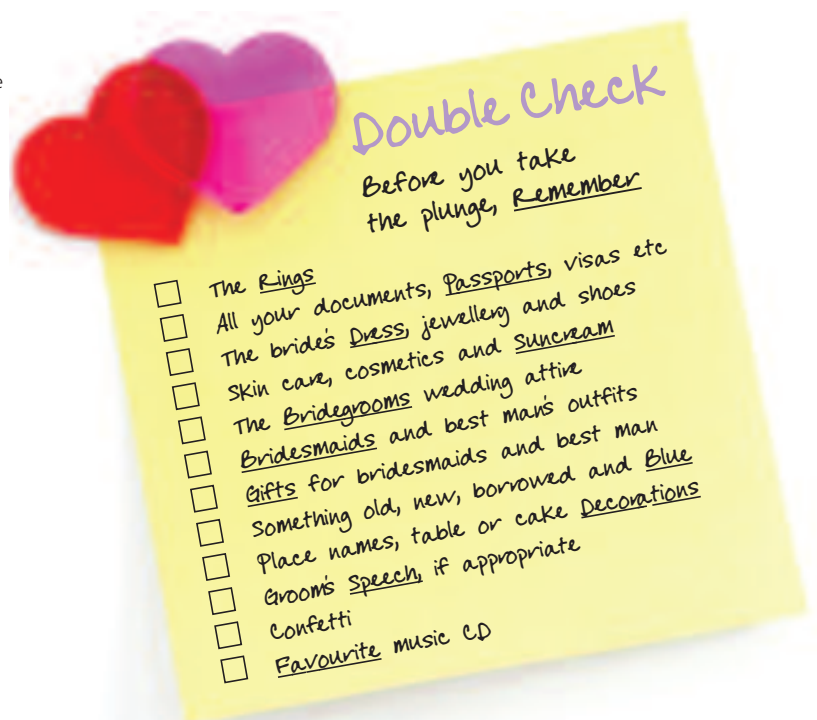 e
Double Check
Before you take
the plunge, Remember
The Rings
All your documents, Passports, visas etc
The bride's Dress, jewellery and shoes
Skin care, cosmetics and Suncream
The Bridegrooms wedding attire
Bridesmaids and best man's outfits
Gifts for bridesmaids and best man
Something old, new, borrowed and Blue
Place names, table or cake Decorations
Groom's Speech, if appropriate
Confetti
Favourite music CD